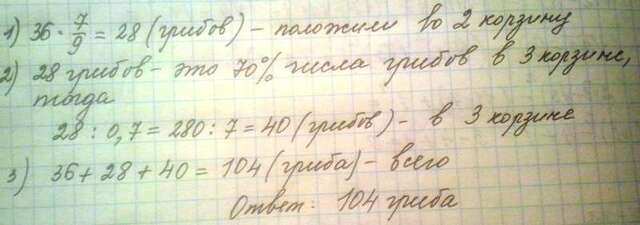 1) 36 · 7/9 = 28 (грибов) – положили во 2 корзину
2) 28 грибов – это 70% числа грибов в 3 корзине,
тогда
28 : 0,7 = 280 : 7 = 40 (грибов) – в 3 корзине
3) 36 + 28 + 40 = 104 (гриба) – всего
Ответ: 104 гриба